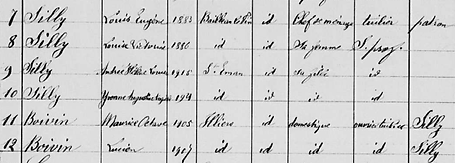 7 Silly Louis Eugène 1883 id Chef de ménage tuilier patron
8 Silly Louise Victorine 1880 id id Sa femme S. prof.
9 Silly Andrée 1915 id Sa fille id
10 Silly Yvonne id id id id
11 Boivin Maurice Octave 1905 Illiers id domestique ouvrier tuilier Silly
12 Boivin Lucien 1907 id id id id Silly